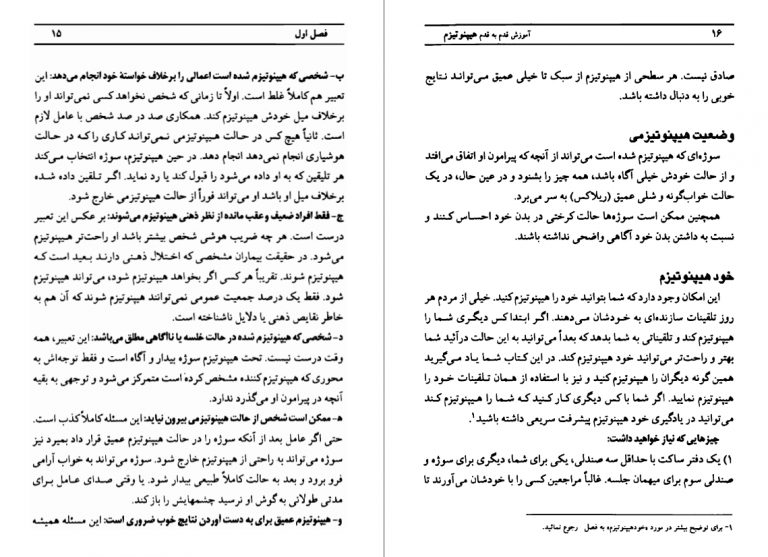 ۱۶ آموزش قدم به قدم هیپنوتیزم
صادق نیست. هر سطحی از هیپنوتیزم از سبک تا خیلی عمیق می‌تواند نتایج
خوبی را به دنبال داشته باشد.
وضعیت هیپنوتیزمی
سوژه‌ای که هیپنوتیزم شده است می‌تواند از آنچه که پیرامون او اتفاق می‌افتد
و از حالت خودش خیلی آگاه باشد، همه چیز را بشنود و در عین حال، در یک
حالت خواب‌گونه و شلی عمیق (ریلاکس) به سر می‌برد.
همچنین ممکن است سوژه‌ها حالت کرختی در بدن خود احساس کنند و
نسبت به داشتن بدن خود آگاهی واضحی نداشته باشند.
خود هیپنوتیزم
این امکان وجود دارد که شما بتوانید خود را هیپنوتیزم کنید. خیلی از مردم هر
روز تلقینات سازنده‌ای به خودشان می‌دهند. اگر ابتدا کس دیگری شما را
هیپنوتیزم کند و تلقیناتی به شما بدهد که بعداً می‌توانید به این حالت درآئید شما
بهتر و راحت‌تر می‌توانید خود هیپنوتیزم کنید. در این کتاب شما یاد می‌گیرید
همین گونه دیگران را هیپنوتیزم کنید و نیز با استفاده از همان تلقینات خود را
هیپنوتیزم نمایید. اگر شما با کس دیگری کار کنید که شما را هیپنوتیزم کند
می‌توانید در یادگیری خود هیپنوتیزم پیشرفت سریعی داشته باشید.¹
چیزهایی که نیاز خواهید داشت:
۱) یک دفتر ساکت با حداقل سه صندلی، یکی برای شما، دیگری برای سوژه و
صندلی سوم برای میهمان جلسه. غالباً مراجعین کسی را با خودشان می‌آورند تا
۱- برای توضیح بیشتر در مورد «خودهیپنوتیزم» به فصل رجوع نمائید.
فصل اول ۱۵
ب- شخصی که هیپنوتیزم شده است اعمالی را برخلاف خواستهٔ خود انجام می‌دهد: این
تعبیر هم کاملاً غلط است. اولاً تا زمانی که شخص نخواهد کسی نمی‌تواند او را
برخلاف میل خودش هیپنوتیزم کند. همکاری صد در صد شخص با عامل لازم
است. ثانیاً هیچ کس در حالت هیپنوتیزمی نمی‌تواند کاری را که در حالت
هوشیاری انجام نمی‌دهد انجام دهد. در حین هیپنوتیزم، سوژه انتخاب می‌کند
هر تلقین که به او داده می‌شود را قبول کند یا رد نماید. اگر تلقین داده شده
برخلاف میل او باشد او می‌تواند فوراً از حالت هیپنوتیزمی خارج شود.
ج- فقط افراد ضعیف و عقب مانده از نظر ذهنی هیپنوتیزم می‌شوند: بر عکس این تعبیر
درست است. هر چه ضریب هوشی شخص بیشتر باشد او راحت‌تر هیپنوتیزم
می‌شود. در حقیقت بیماران مشخصی که اختلال ذهنی دارند بعید است که
هیپنوتیزم شوند. تقریباً هر کسی اگر بخواهد هیپنوتیزم شود، می‌تواند هیپنوتیزم
شود. فقط یک درصد جمعیت عمومی نمی‌توانند هیپنوتیزم شوند که آن هم به
خاطر نقایص ذهنی یا دلایل ناشناخته است.
د- شخصی که هیپنوتیزم شده در حالت خلسه یا ناآگاهی مطلق می‌باشد: این تعبیر، همه
وقت درست نیست. تحت هیپنوتیزم سوژه بیدار و آگاه است و فقط توجه‌اش به
محوری که هیپنوتیزم کننده مشخص کرده است متمرکز می‌شود و توجهی به بقیه
آنچه در پیرامون او می‌گذرد ندارد.
ه- ممکن است شخص از حالت هیپنوتیزمی بیرون نیاید: این مسئله کاملاً کذب است.
حتی اگر عامل بعد از آنکه سوژه را در حالت هیپنوتیزم عمیق قرار داد بمیرد نیز
سوژه می‌تواند به راحتی از هیپنوتیزم خارج شود. سوژه می‌تواند به خواب آرامی
فرو برود و بعد به حالت کاملاً طبیعی بیدار شود. یا وقتی صدای عامل برای
مدتی طولانی به گوش او نرسید چشمهایش را باز کند.
و- هیپنوتیزم عمیق برای به دست آوردن نتایج خوب ضروری است: این مسئله همیشه